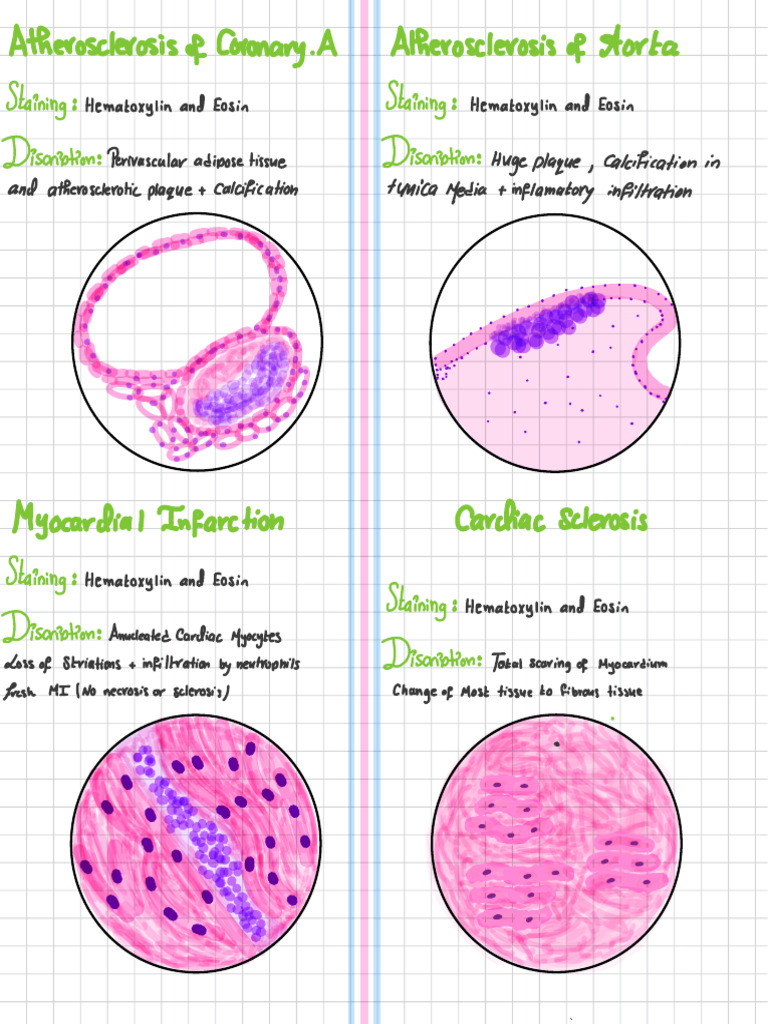 Atherosclerosis of Coronary.A
Staining: Hematoxylin and Eosin
Discription: Perivascular adipose tissue
and atherosclerotic plaque + Calcification
Atherosclerosis of Aorta
Staining: Hematoxylin and Eosin
Discription: Huge plaque, Calcification in
tunica Media + inflamatory infiltration
Myocardial Infarction
Staining: Hematoxylin and Eosin
Discription: Anucleated Cardiac Myocytes
Loss of Striations + infiltration by neutrophils
fresh MI (No necrosis or sclerosis)
Cardiac Sclerosis
Staining: Hematoxylin and Eosin
Discription: Total scaring of Myocardium
Change of Most tissue to fibrous tissue